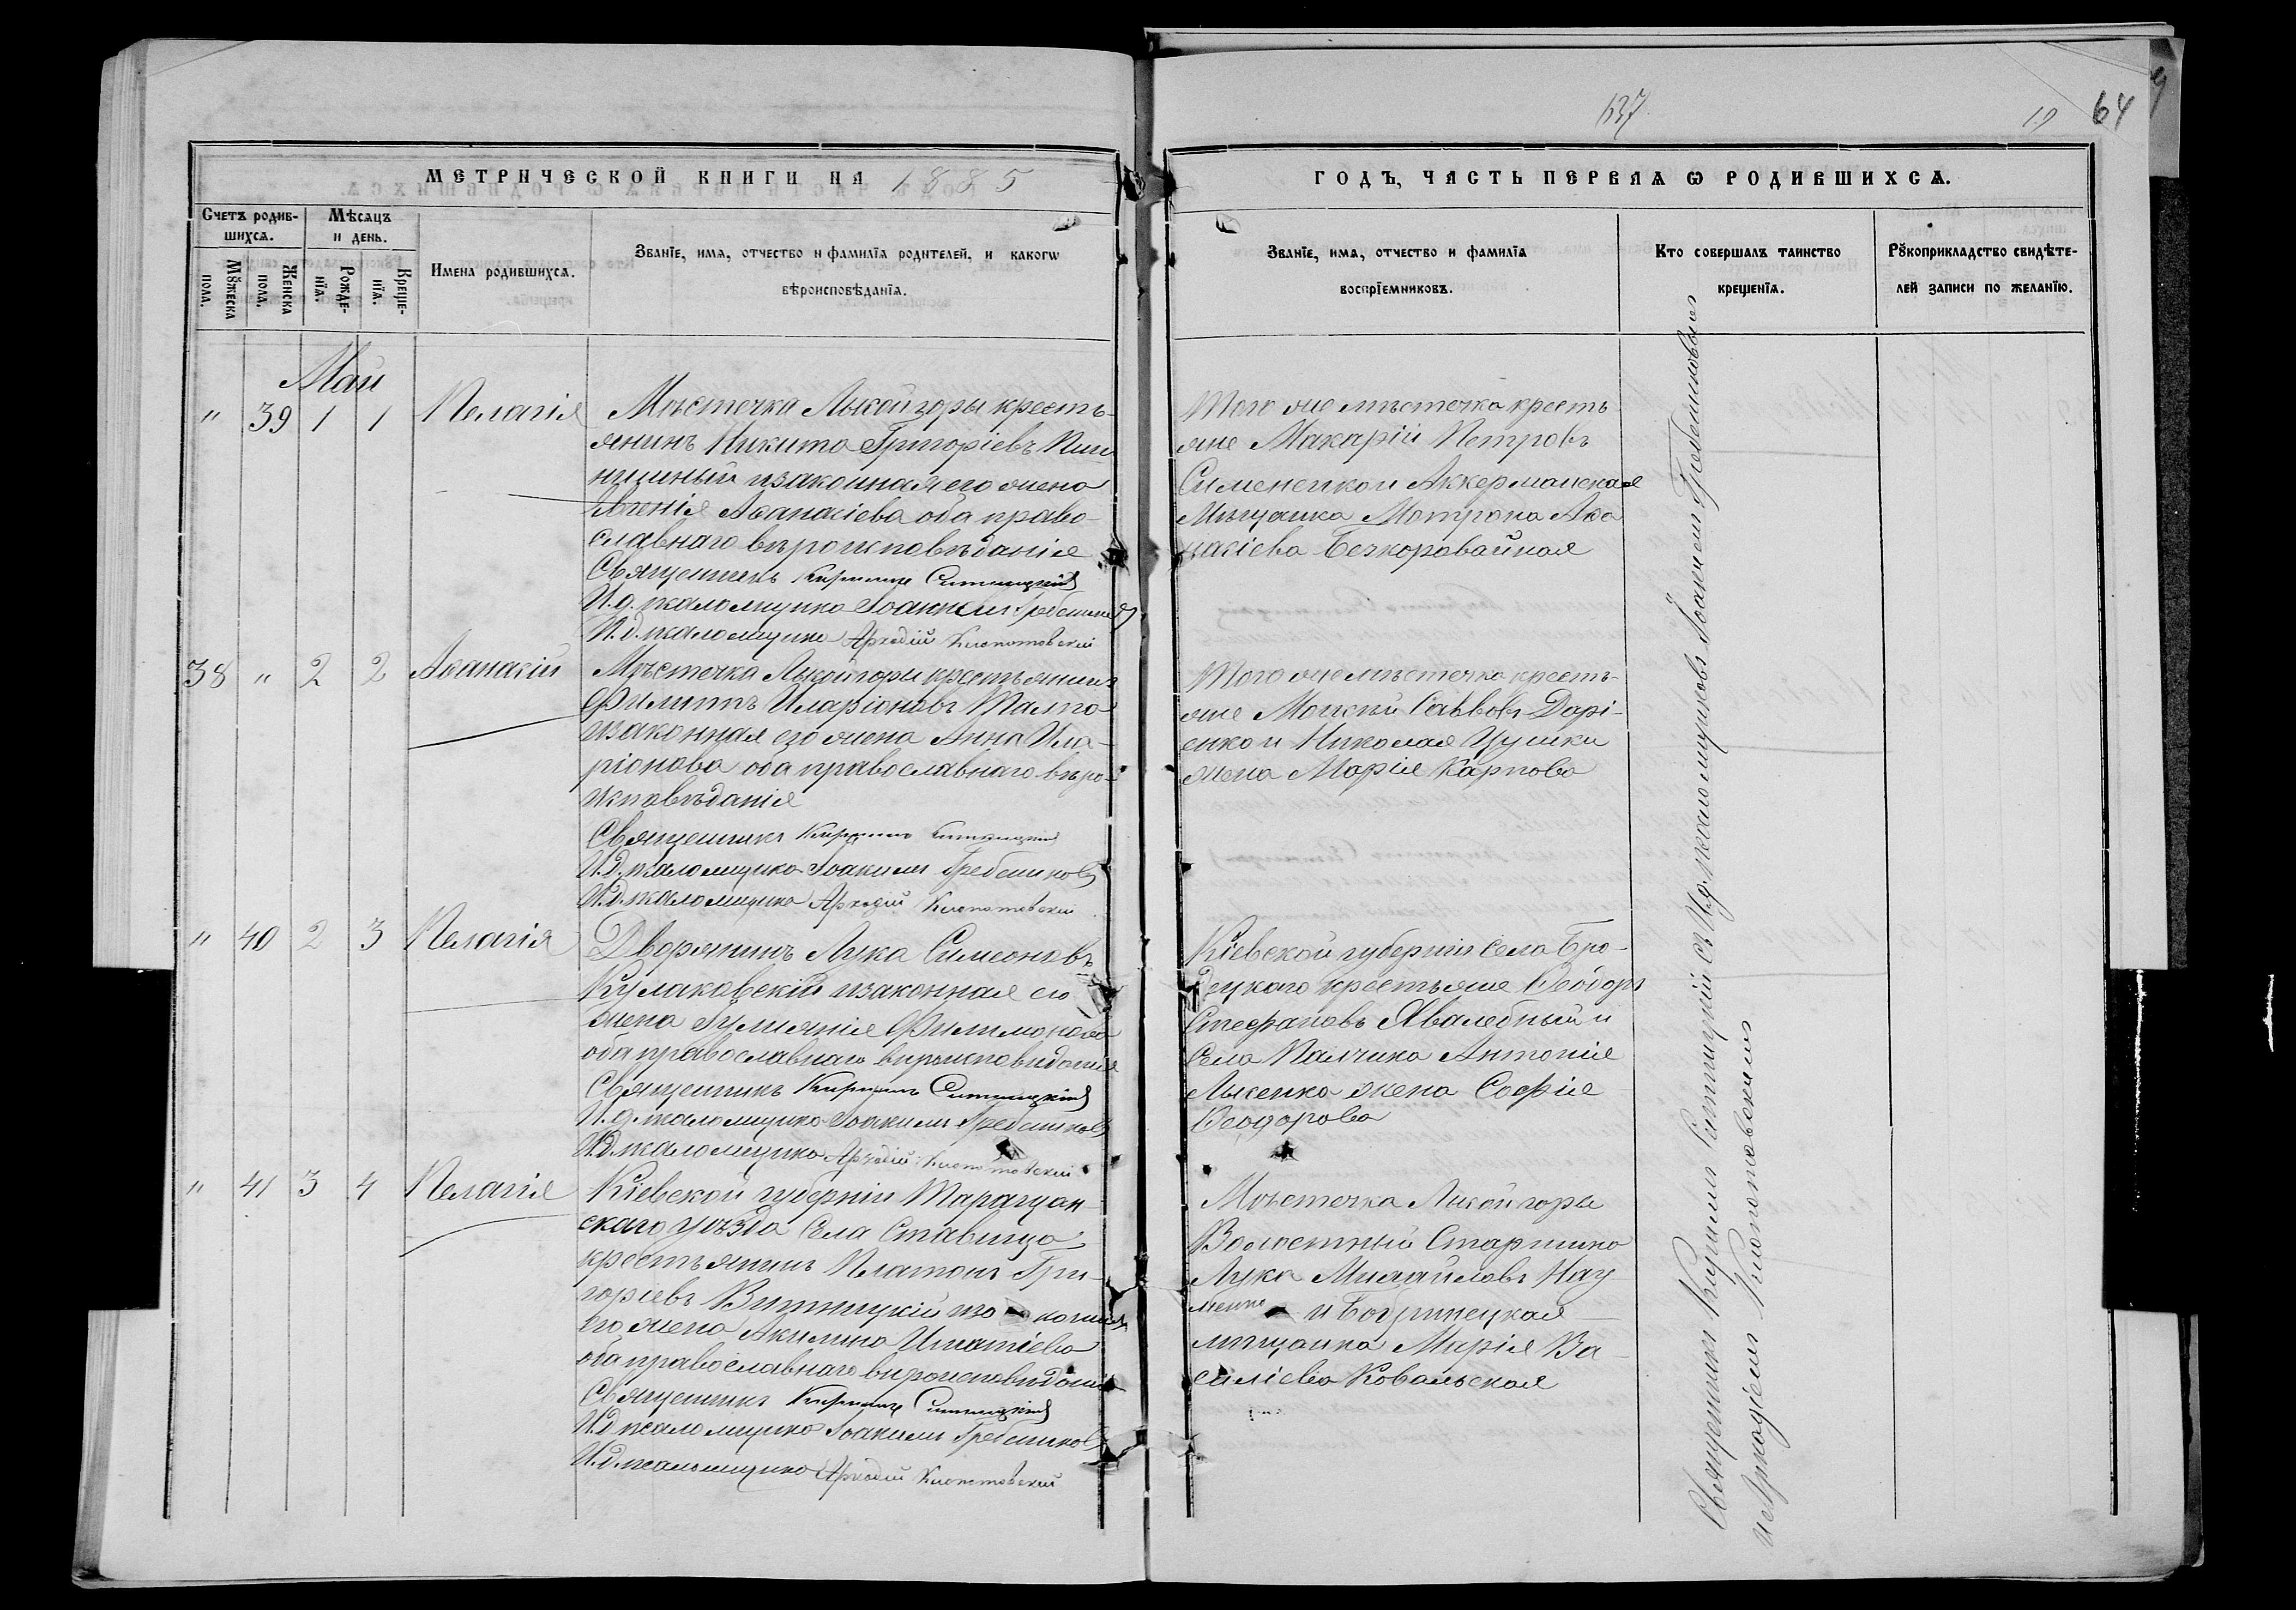 137
19 64
МЕТРИЧЕСКОЙ КНИГИ НА 1885
ГОДЪ, ЧАСТЬ ПЕРВАЯ Ѡ РОДИВШИХСѦ.
Счетъ родив-
шихсѧ.
Мѣсѧцъ
и день.
Мꙋжеска
пола.
Женска
пола.
Рожде-
нїѧ.
Креще-
нїѧ.
Имена родившихсѧ.
Званїе, имѧ, отчество и фамилїѧ родителей, и какогѡ
вѣроисповѣданїѧ.
Званїе, имѧ, отчество и фамилїѧ
воспрїемниковъ.
Кто совершалъ таинство
крещенїѧ.
Рꙋкоприкладство свидѣте-
лей записи по желанїю.
Май
" 39 1 1 Пелагія
Мѣстечка Лысой горы кресть-
янинъ Никита Григоріевъ Пше
ничный и законная его жена
Евгенія Аѳанасіева оба право-
славнаго вѣроисповѣданія
Священникъ Кириллъ Ситницкій
И.д. псаломщика Іоакимъ Гребенников
И.д. псаломщика Аркадій Клопотовскій
Того же мѣстечка кресть
яне Макарій Петровъ
Сименѣнко и Аккерманская
Мѣщанка Матрона Аѳа
насіева Безкоровайная
38 " 2 2 Аѳанасій
Мѣстечка Лысой горы крестьянинъ
Филиппъ Иларіоновъ
и законная его жена Анна Ила-
ріонова оба православнаго вѣро-
исповѣданія
Священникъ Кириллъ Ситницкій
И.д. псаломщика Іоакимъ Гребенников
И.д. псаломщика Аркадій Клопотовскій
Того же мѣстечка кресть-
яне Моисей Саввовъ Дарі-
енко и Николая
жена Марія Карпова
" 40 2 3 Пелагія
Дворянинъ Лука Симеоновъ
Кулаковскій и законная его
жена Гуліянія Филимонова
оба православнаго вѣроисповѣданія
Священникъ Кириллъ Ситницкій
И.д. псаломщика Іоакимъ Гребенников
И.д. псаломщика Аркадій Клопотовскій
Кіевской губерніи села Бро-
децкаго крестьяне Ѳеодоръ
Стефановъ Хвалебный и
Села Пальчика Антонія
Лысенка жена Софія
Ѳеодорова
" 41 3 4 Пелагія
Кіевской губерніи Таращан-
скаго уѣзда Села Ставища
крестьянинъ Платонъ Гри-
горіевъ Витвицкій и за конная
его жена Акилина Игнатіева
оба православнаго вѣроисповѣданія
Священникъ Кириллъ Ситницкій
И.д. псаломщика Іоакимъ Гребенников
И.д. псаломщика Аркадій Клопотовскій
Мѣстечка Лысой горы
Волостный Старшина
Лука Михайловъ Нау
менко и Бобринецкая
мѣщанка Марія Ва-
силіева Ковальская
Священникъ Кириллъ Ситницкій съ И.д. псаломщиковъ Іоакимомъ Гребенниковымъ
и Аркадіемъ Клопотовскимъ